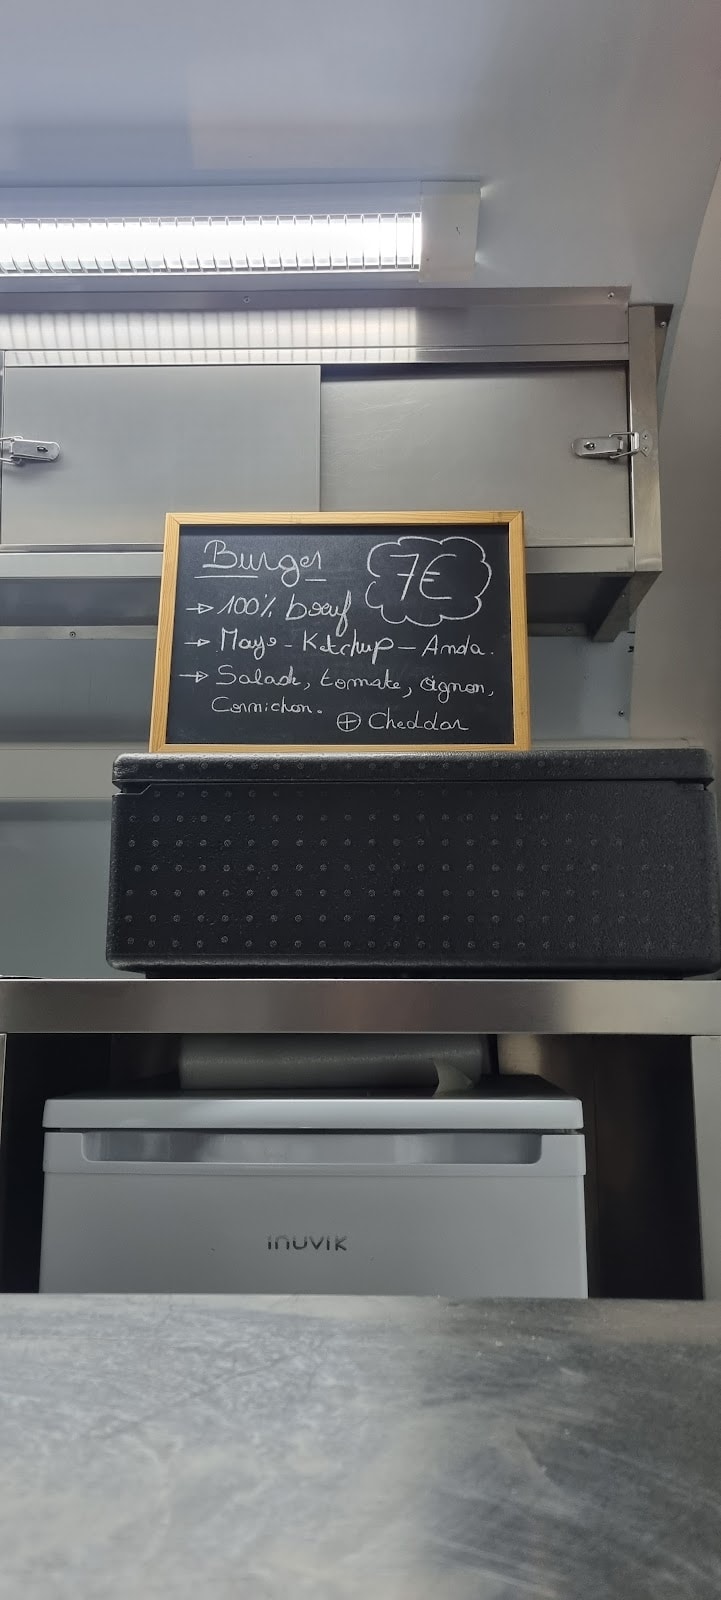 Burger 7€
→ 100% bœuf
→ Mayo - Ketchup - Anda.
→ Salade, tomate, oignon,
Cornichon.
⊕ Cheddar
inuvik